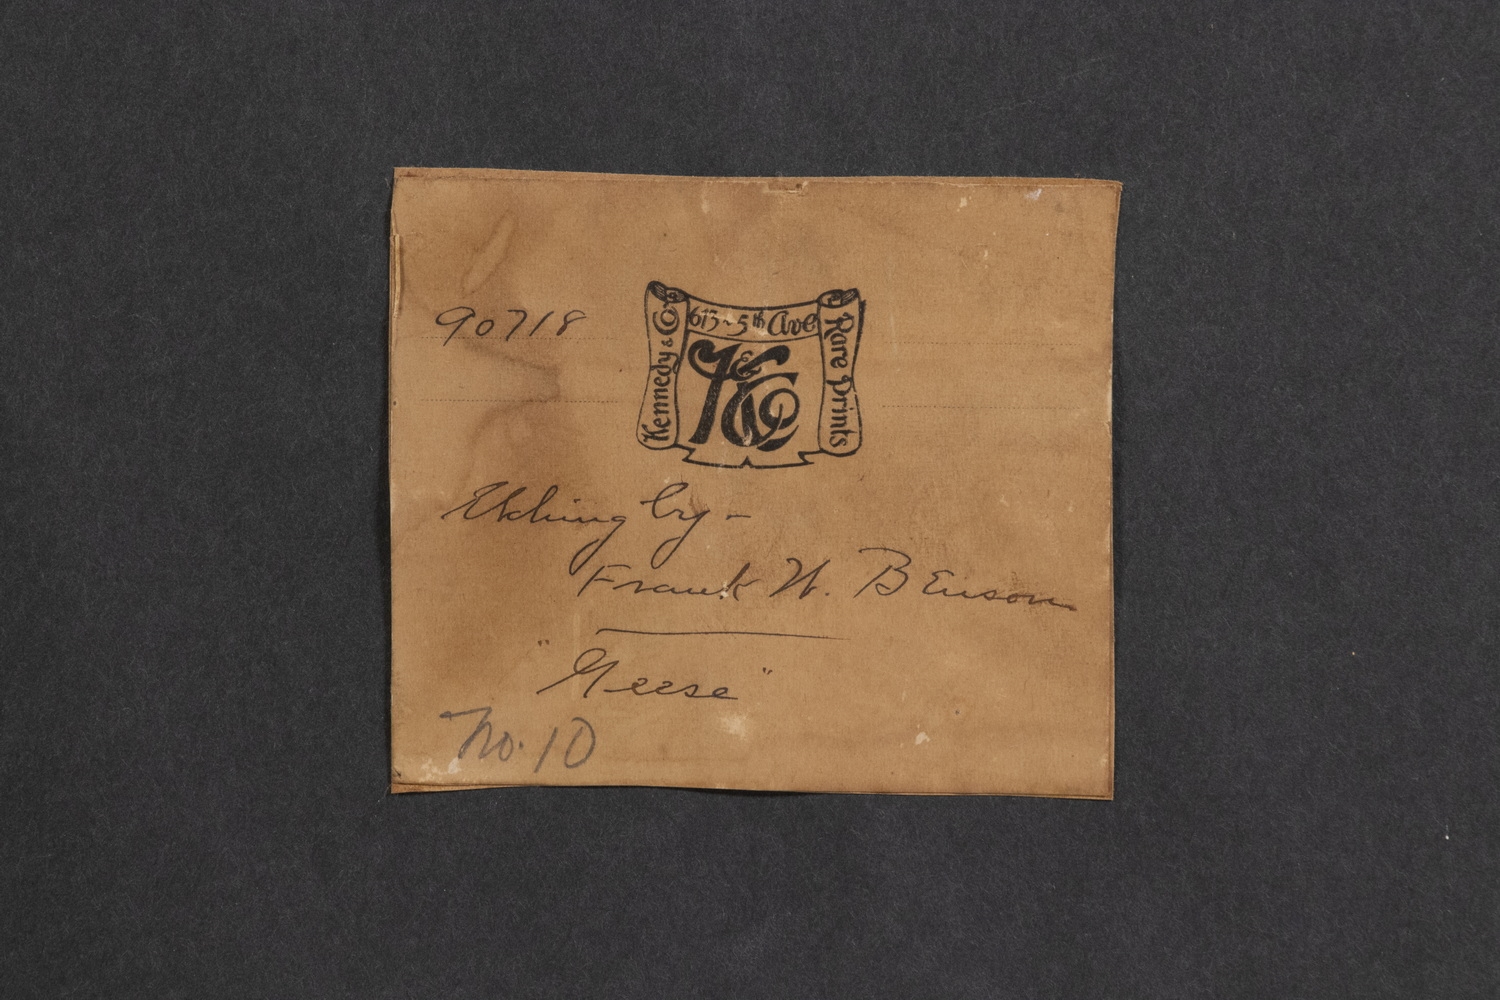 90718
Kennedy & Co.
613~5th Ave
Rare Prints
K & Co
Etching by -
Frank W. Benson
"Geese"
No. 10